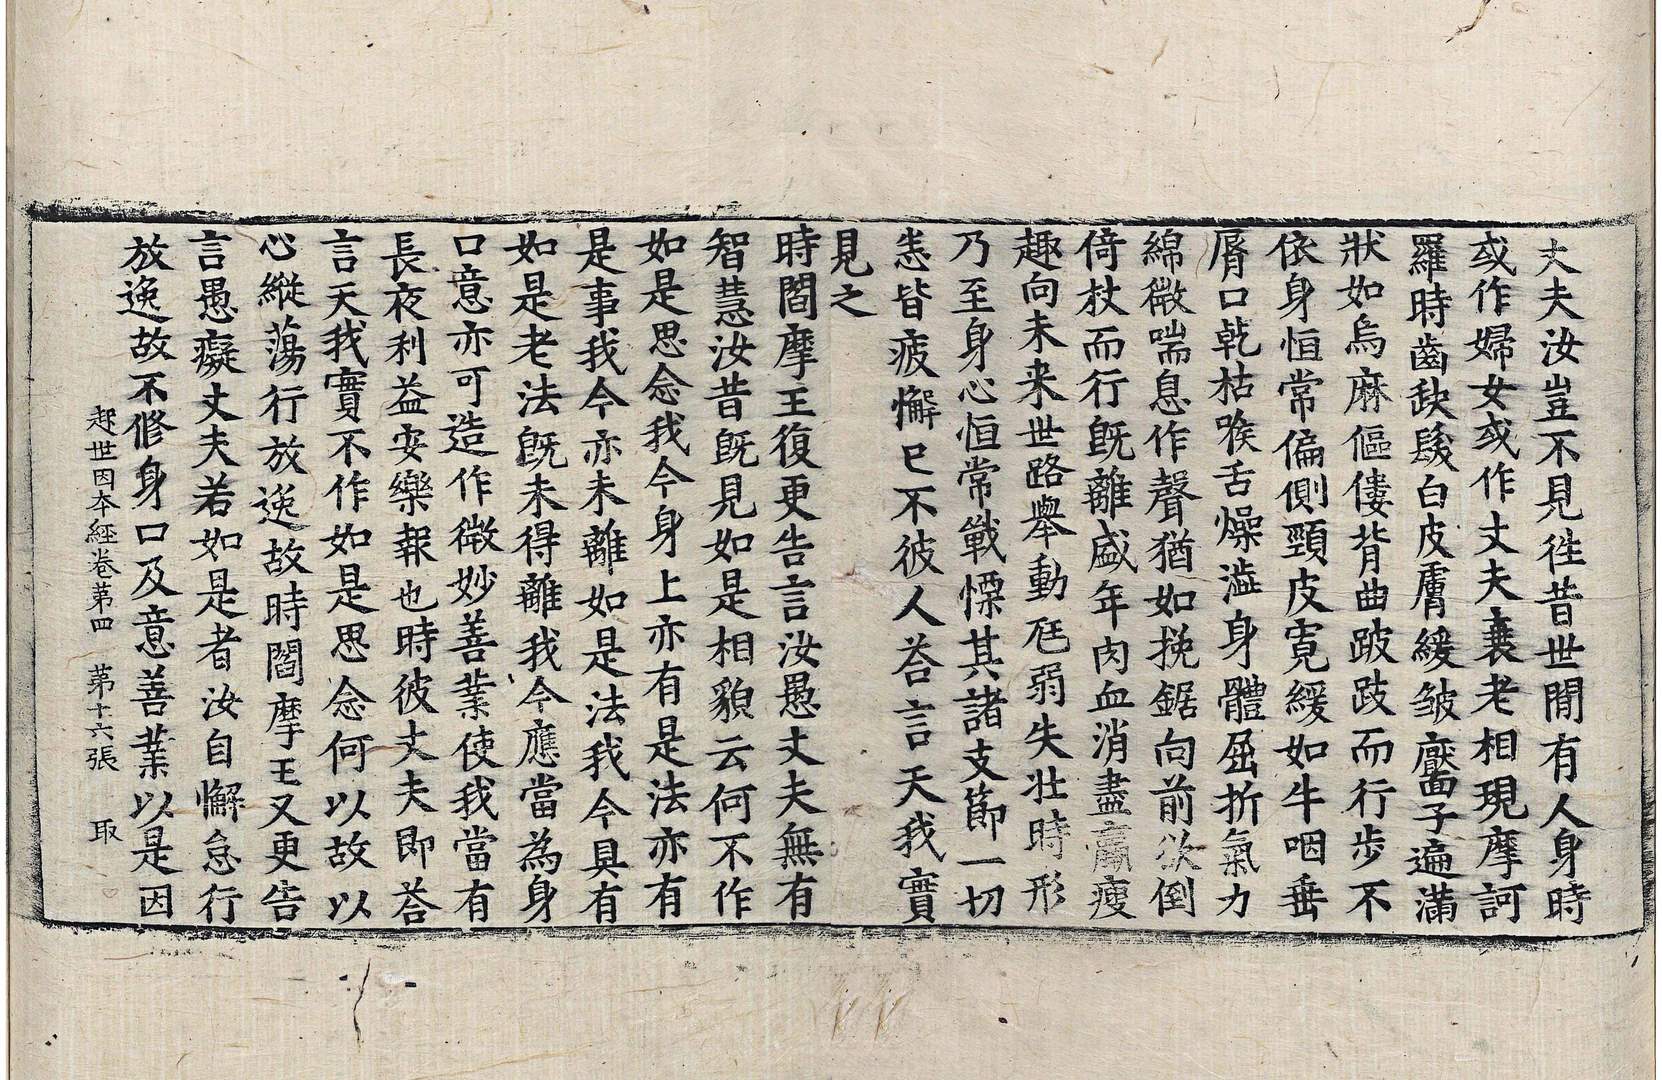 丈夫汝豈不見徃昔世閒有人身時
或作婦女或作丈夫衰老相現摩訶
羅時齒缺髮白皮膚緩皺黶子遍滿
狀如烏麻傴僂背曲跛跂而行步不
依身恒常偏側頸皮寬緩如牛咽垂
脣口乾枯喉舌燥澁身體屈折氣力
綿微喘息作聲猶如挽鋸向前欲倒
倚杖而行旣離盛年肉血消盡羸瘦
趣向未来世路舉動尫弱失壮時形
乃至身心恒常戰慄其諸支節一切
悉皆疲懈已不彼人荅言天我實
見之
時閻摩王復更告言汝愚丈夫無有
智慧汝昔旣見如是相貌云何不作
如是思念我今身上亦有是法亦有
是事我今亦未離如是法我今具有
如是老法旣未得離我今應當為身
口意亦可造作微妙善業使我當有
長夜利益安樂報也時彼丈夫即荅
言天我實不作如是思念何以故以
心縱蕩行放逸故時閻摩王又更告
言愚癡丈夫若如是者汝自懈怠行
放逸故不修身口及意善業以是因
起世因本經卷苐四 苐十六張 取